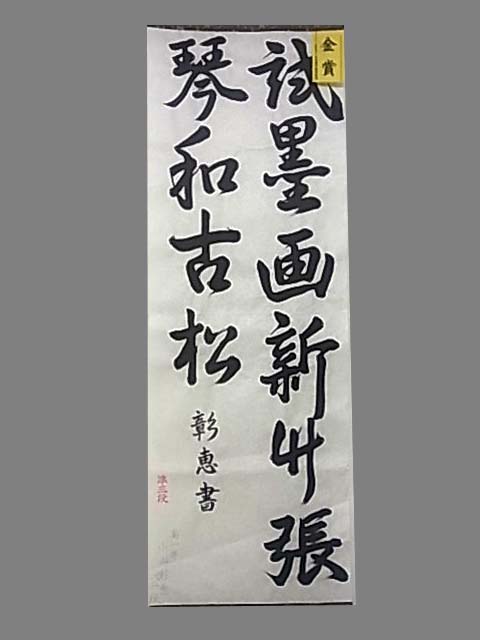 金賞
試墨画新竹張
琴和古松
彰恵書
準三段